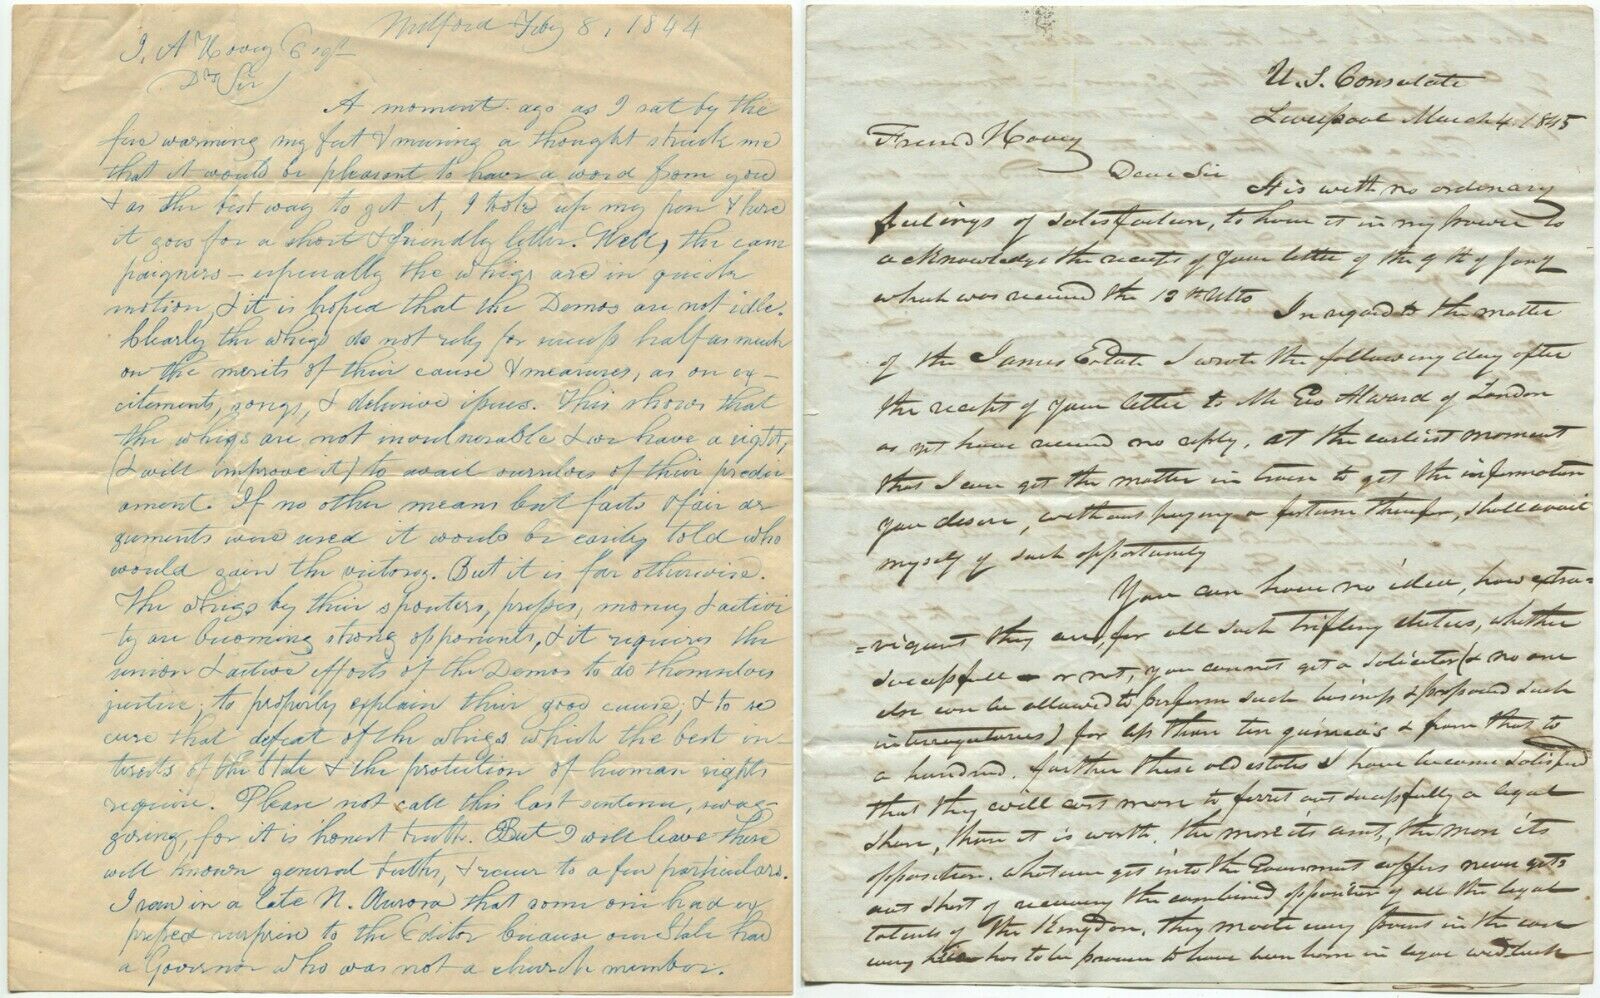 Milford Feby 8, 1844
J. A Hovey Esqr
Dr Sir
A moment ago as I sat by the
fire warming my feet & musing a thought struck me
that it would be pleasant to have a word from you
& as the best way to get it, I took up my pen & here
it goes for a short & friendly letter. Well, the cam
paigners – especially the whigs are in quick
motion, & it is hoped that the Demos are not idle.
Clearly the whigs do not rely for success half as much
on the merits of their cause & measures, as on ex–
citements, songs, & delusive issues. This shows that
the whigs are not invulnerable & we have a right,
(& will improve it) to avail ourselves of their predic
ament. If no other means but facts & fair ar
guments were used it would be easily told who
would gain the victory. But it is far otherwise.
The whigs by their spouters, presses, money & activi
ty are becoming strong opponents, & it requires the
union & active efforts of the Demos to do themselves
justice; to properly explain their good cause; & to se
cure that defeat of the whigs which the best in–
terests of the State & the protection of human rights
require. Please not call this last sentence, swag–
gering, for it is honest truth. But I will leave these
well known general truths, & recur to a few particulars.
I saw in a late N. Aurora that some one had ex
pressed surprise to the Editor because our State had
a Governor who was not a church member.
U. S. Consulate
Liverpool March 4. 1845
Friend Hovey
Dear Sir
It is with, no ordinary
feelings of satisfaction, to have it in my power to
acknowledge the receipt of your letter of the 9th of Jany
which was received the 13th Ulto
In regard to the matter
of the James Estate I wrote the following day after
the receipt of your letter to Mr Geo Alward of London
as yet have received no reply. at the earliest moment
that I can get the matter in train to get the information
you desire, without paying a fortune therefor, shall avail
myself of such opportunity
You can have no idea, how extra=
=vigant they are, for all such trifling duties, whether
successfull or not, you cannot get a Soliciter (& no one
else can be allowed to perform such business & propound such
interrogatories) for less than ten guineas & from that to
a hundred. further these old estates I have become satisfied
that they will cost more to ferret out successfully a legal
share, than it is worth. the more its amt, the more its
opposition. whatever gets into the Government coffers never gets
out short of receiving the combined opposition of all the legal
talents of the Kingdom. they make every point in the case
every has to be proven to have been born in legal wedlock